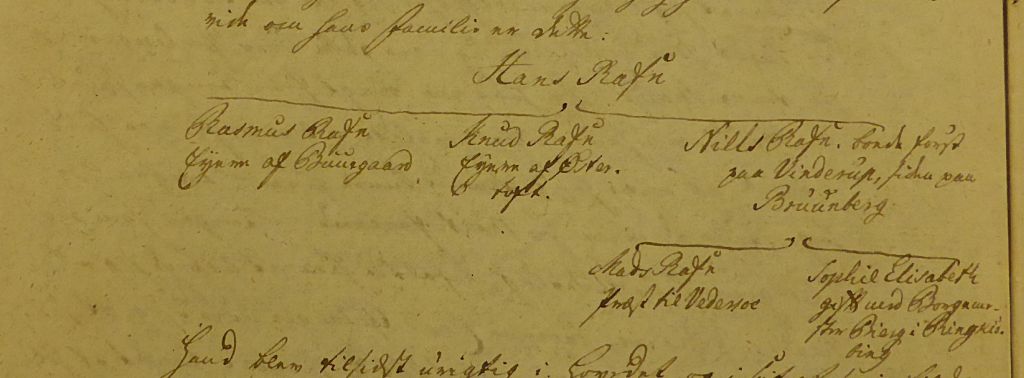 vide om hans familie er dette:
Hans Rafn
Rasmus Rafn
Eyere af Buusgaard
Knud Rafn
Eyere af Øster-
toft.
Nills Rafn. bonde først
paa Vinderup, siden paa
Bruunberg
Mads Rafn
præst til Vedersøe
Sophie Elisabeth
gift med Borgeme-
ster Bierg i Ringkiø-
bing
Hand blev tilsidst urigtig i Hovedet og i